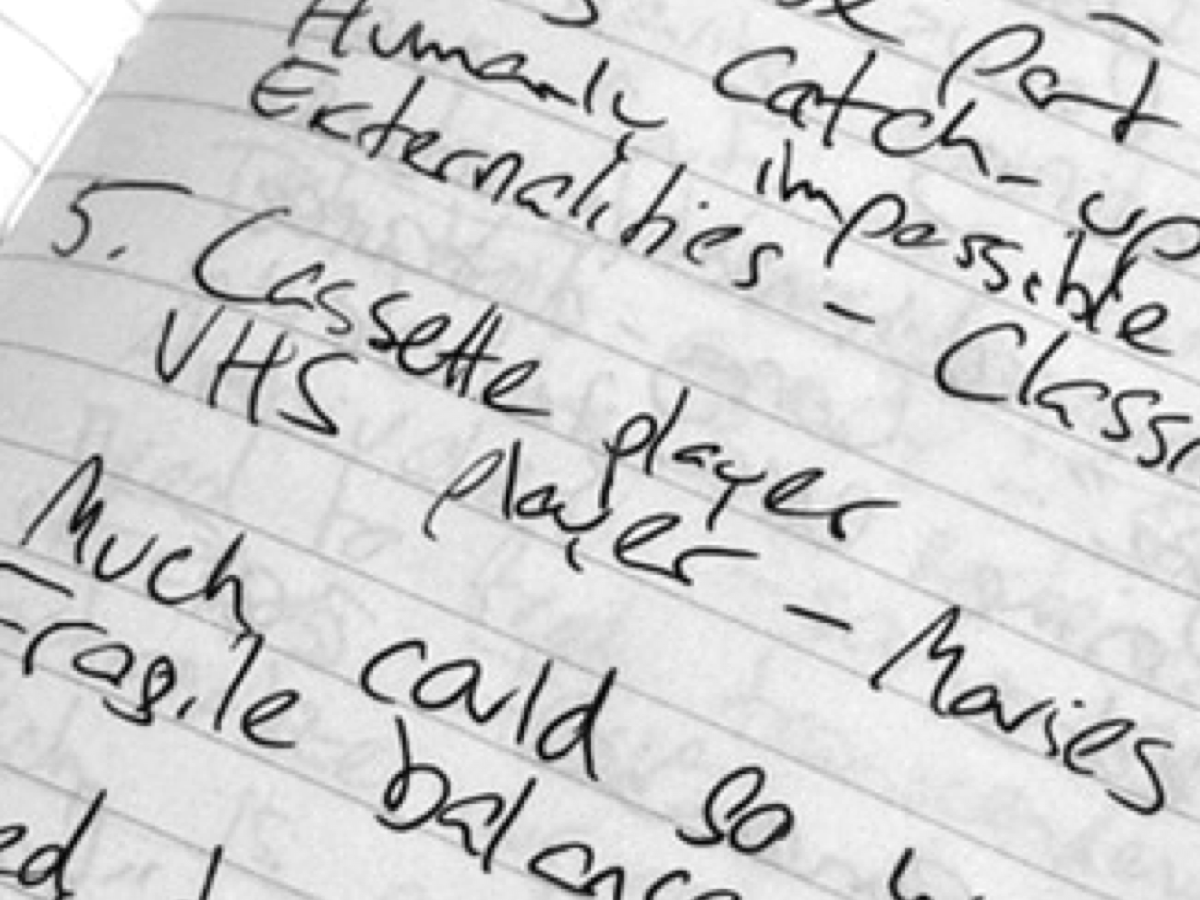 Part
Humanly catch-up
Externalities impossible
5. Cassette player - Class
VHS player - Movies
Much could so
Fragile balance
ed